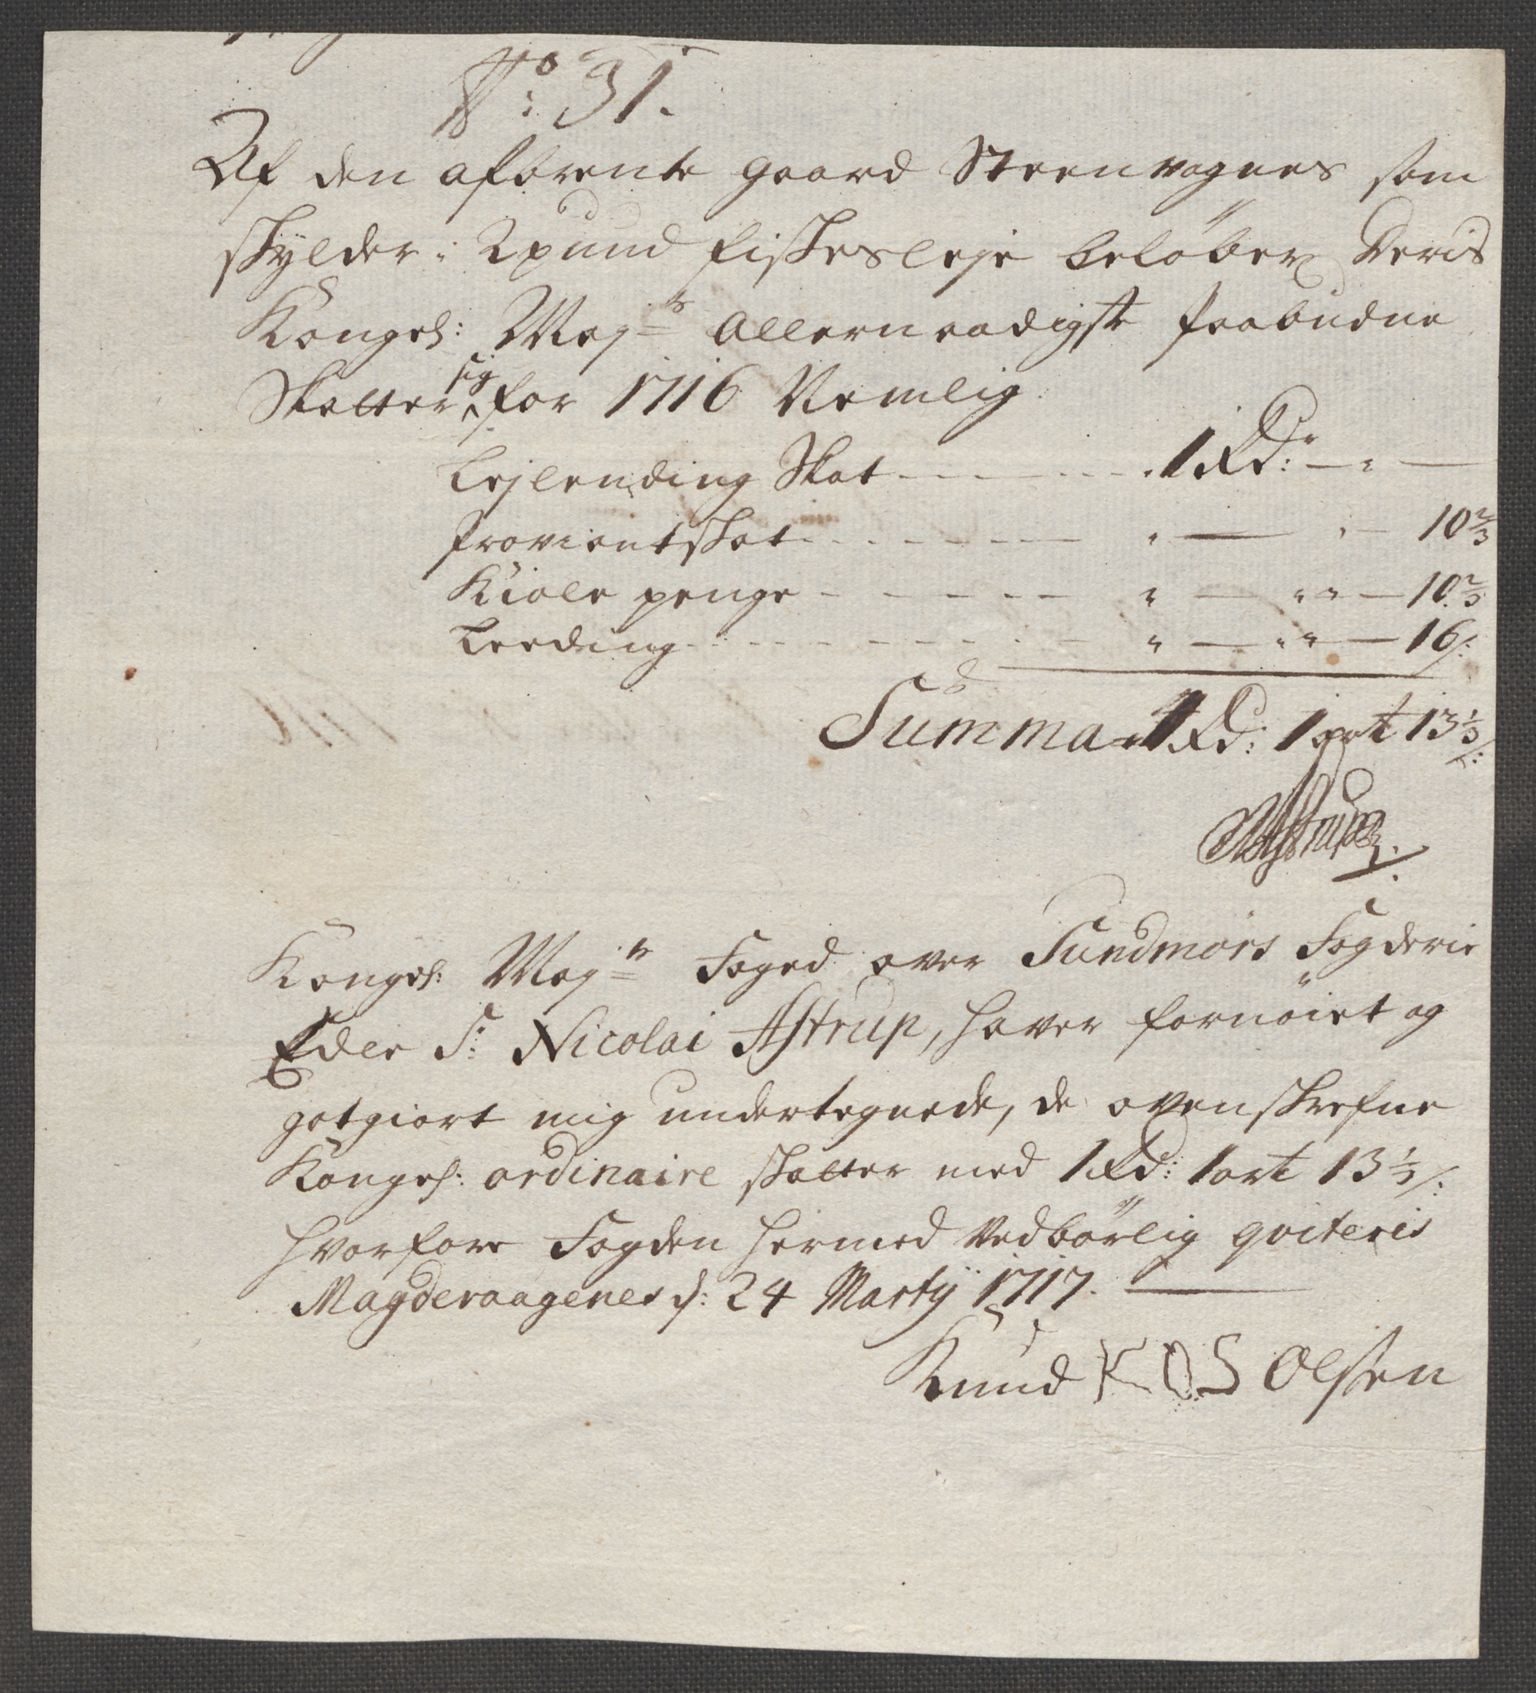 No: 31.
Af den afbrente gaard Steenvognes som
skylder: 2 pund fiskesleje beløber Deris
Kongel: Maj:ts Allernaadigste paabudne
Skatter sig for 1716 Nemlig
Lejlending Skat - - - 1 Rdr: - " -
Proviantskat - - - " - " - 10 2/3
Kiole penge - - - " - " " - 10 2/3
Leeding - - - " - " " - 16 s:
Summa 1 Rd: 1 ort 13 1/3 s:
NAstrup
Kongel: Maj:ts Foged over Sundmørs Fogderie
Edle Sr: Nicolai Astrup, haver fornøiet og
gotgiort mig undertegnede, de ovenskrefne
Kongel: ordinaire skatter med 1 Rd: 1 ort 13 1/3 s:
hvorfore Fogden hermed Vedbørlig qviteris
Magderaagenes d: 24 Martij 1717.
Knud KOS Olsen